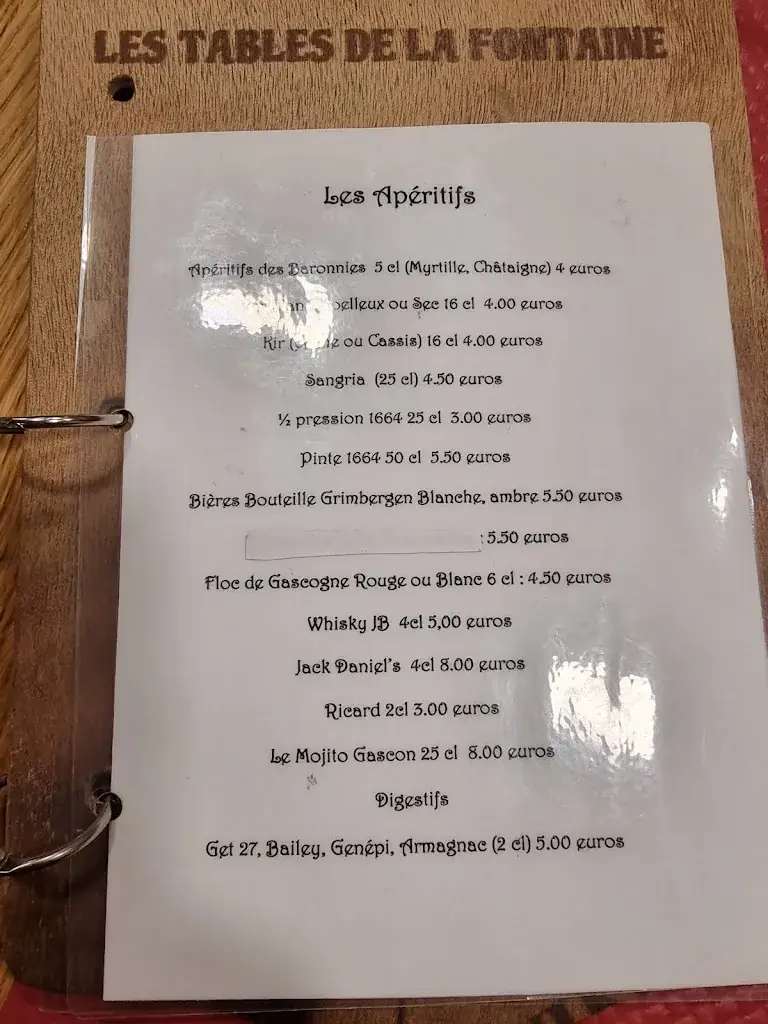 LES TABLES DE LA FONTAINE
Les Apéritifs
Apéritifs des Baronnies 5 cl (Myrtille, Châtaigne) 4 euros
ou Sec 16 cl 4.00 euros
Kir ou Cassis) 16 cl 4.00 euros
Sangria (25 cl) 4.50 euros
½ pression 1664 25 cl 3.00 euros
Pinte 1664 50 cl 5.50 euros
Bières Bouteille Grimbergen Blanche, ambre 5.50 euros
: 5.50 euros
Floc de Gascogne Rouge ou Blanc 6 cl : 4.50 euros
Whisky JB 4cl 5,00 euros
Jack Daniel's 4cl 8.00 euros
Ricard 2cl 3.00 euros
Le Mojito Gascon 25 cl 8.00 euros
Digestifs
Get 27, Bailey, Genépi, Armagnac (2 cl) 5.00 euros